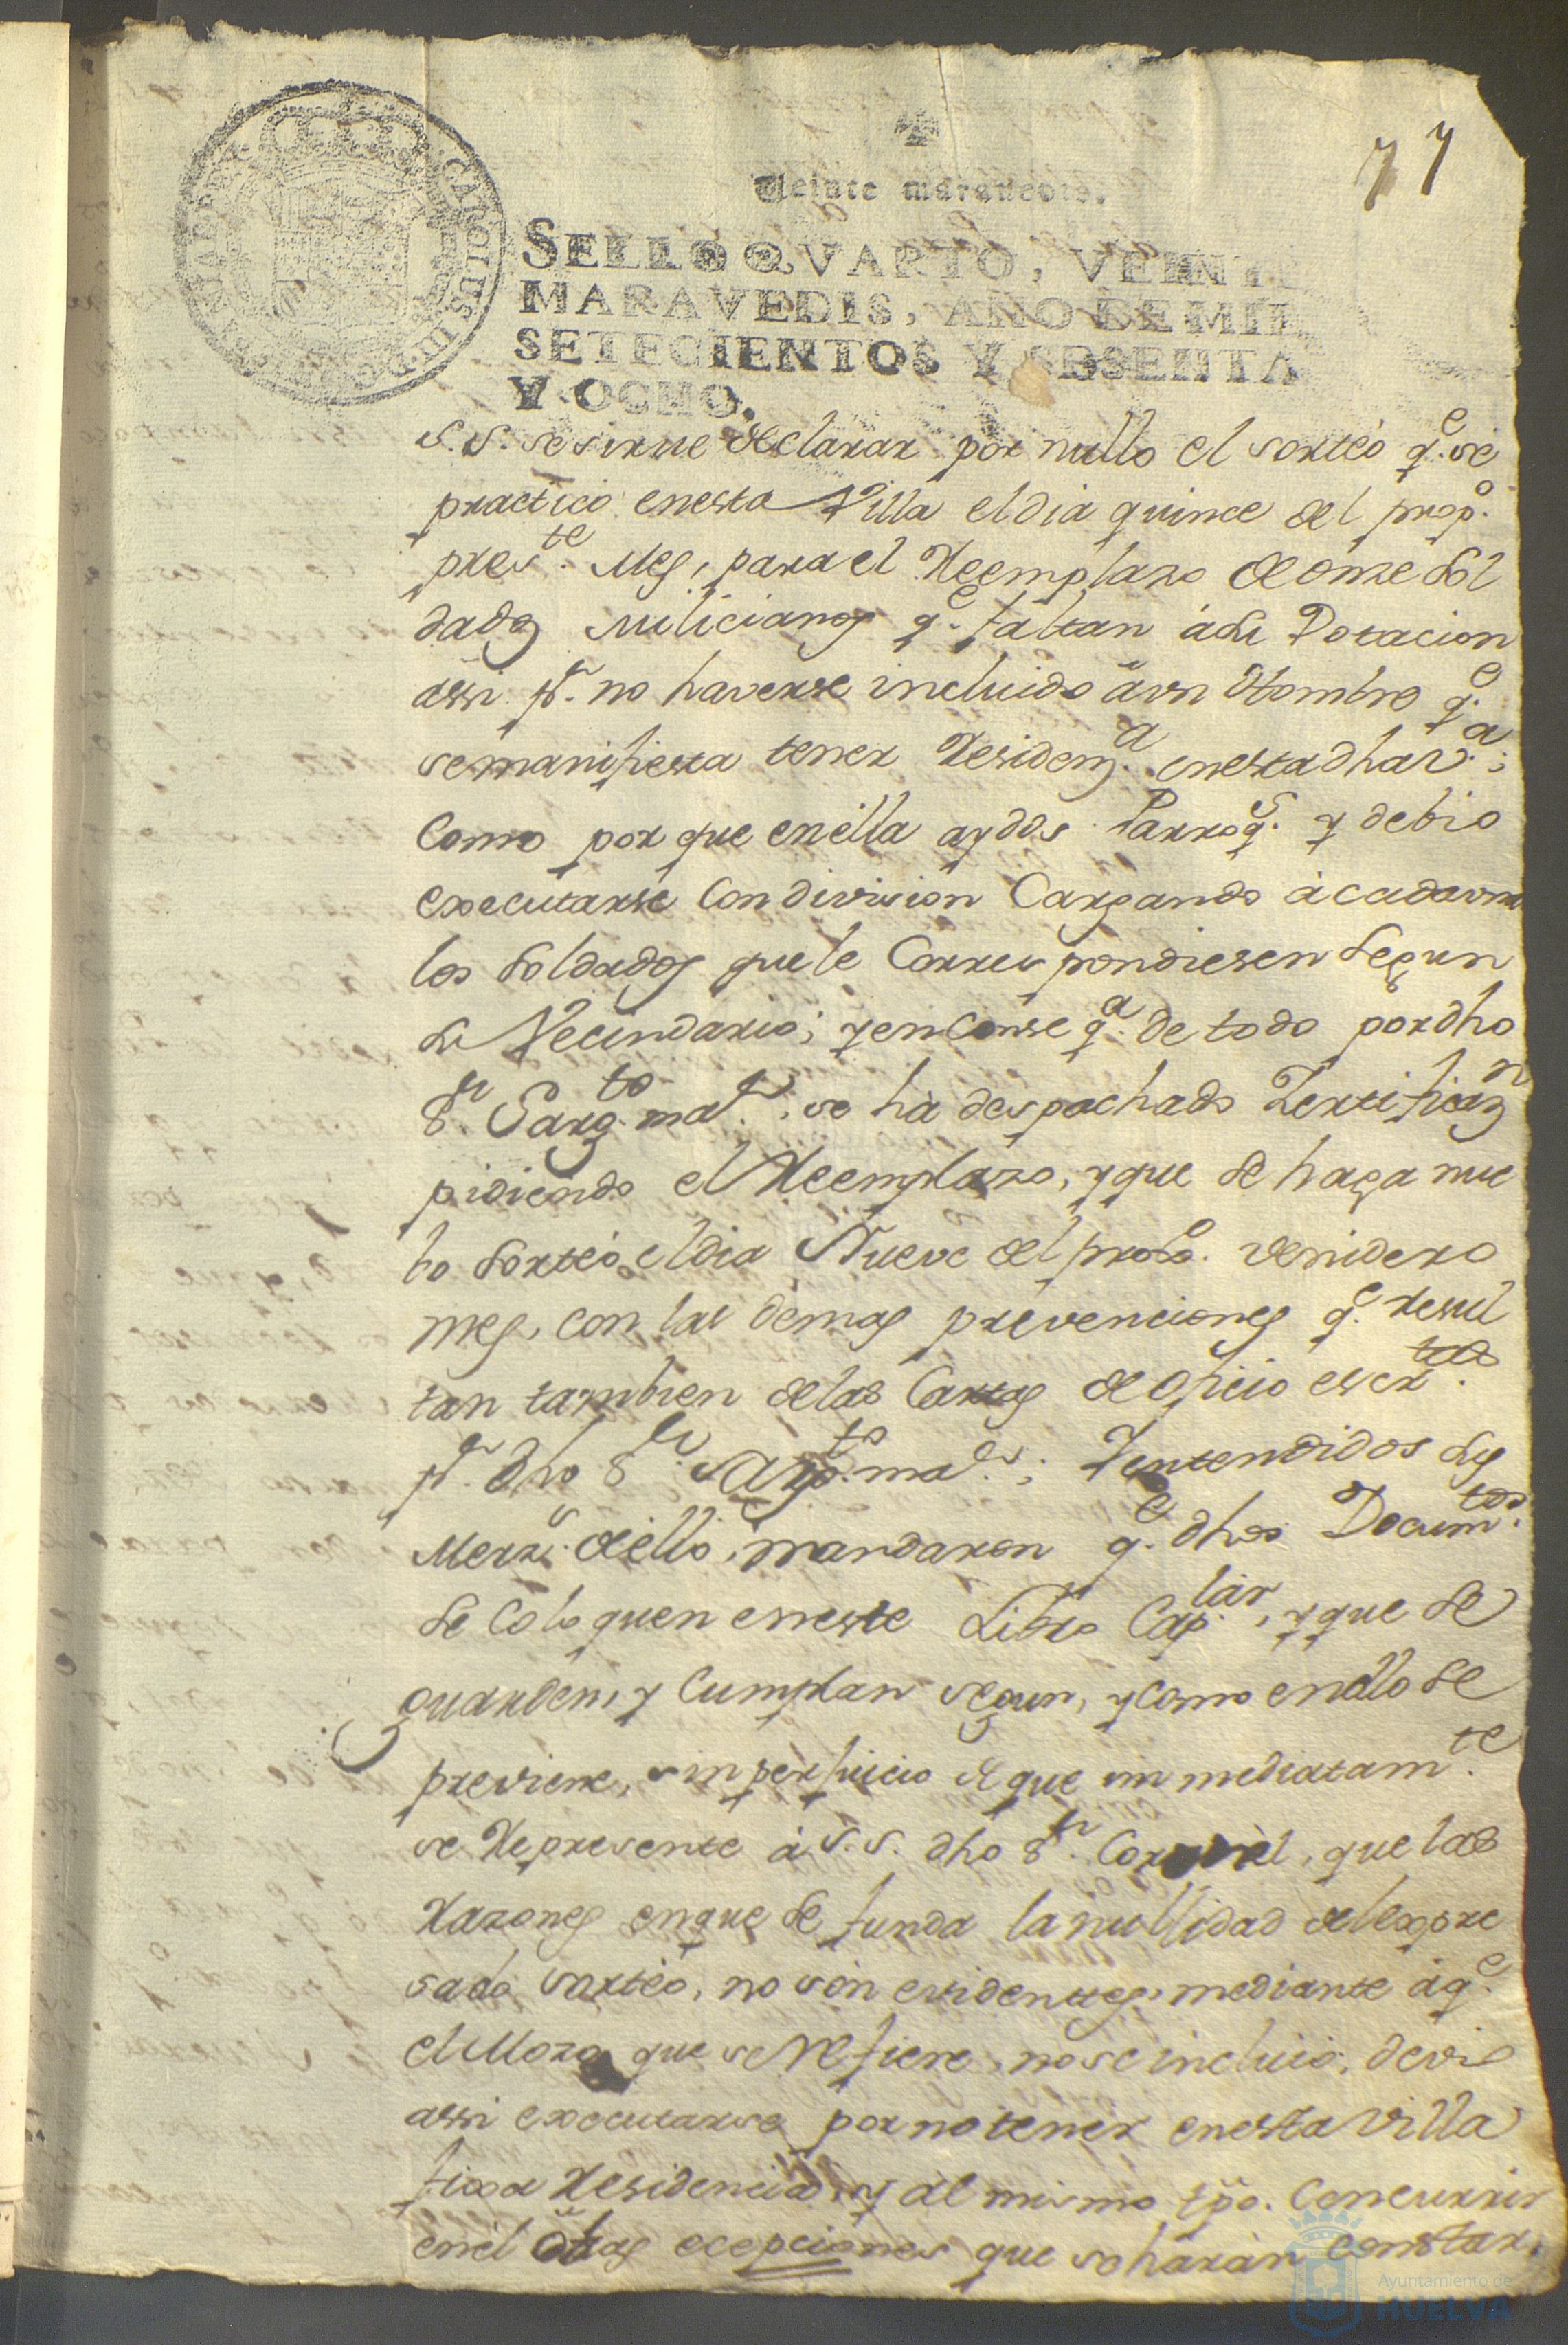 77
Veinte maravedis.
SELLO QVARTO, VEINTE
MARAVEDIS, AÑO DE MIL
SETECIENTOS Y SESENTA
Y OCHO.
CAROLUS III D G
S.S. se sirue declarar por nullo el sorteò q.e se
practicò enesta Villa eldia quince del prop.o
pres.te Mes, para el Reemplazo de onze Sol
dados Milicianos q.e faltan àsu Dotacion
assi p.r no haverse incluido à vn Hombre q.e
semanifiesta tener Residenz.a enestadha V.a;
Como por que enella ay dos Parroq.s y debio
executarse Con division Cargando à cada vna
los Soldados que le Correspondiesen Segun
su Vecindario; y en Conseq.a de todo por dho
S.r Sarg.to ma.r, se hà despachado Zertificaz.n
pidiendo el Reemplazo, y que se haga nue
bo Sorteò, eldia Nueve del prox.o venidero
mes, con las demas prevenciones q.e resul
tan tambien de las Cartas de oficio escr.tas
p.r dho S.r Sarg.to ma.r; Yentendidos Sus
Merz.s deello, mandaron q.e dhos Docum.tos
se Coloquen eneste Libro Cap.lar, y que se
guarden, y Cumplan segun, y como en ello se
previene, sin perjuicio de que immediatam.te
se Represente à S.S. dho S.r Coronèl, que las
Razones enque se funda la nullidad del expre
sado sorteò, no sòn evidenttes, mediante àq.e
el Mozo que se Refiere, nose incluiò, deviò
assi executarse por no tener enesta Villa
fixa Residencia, y àl mismo tpo. Concurrir
enèl otras ecepciones que se haràn constar.
Ayuntamiento de
HUELVA